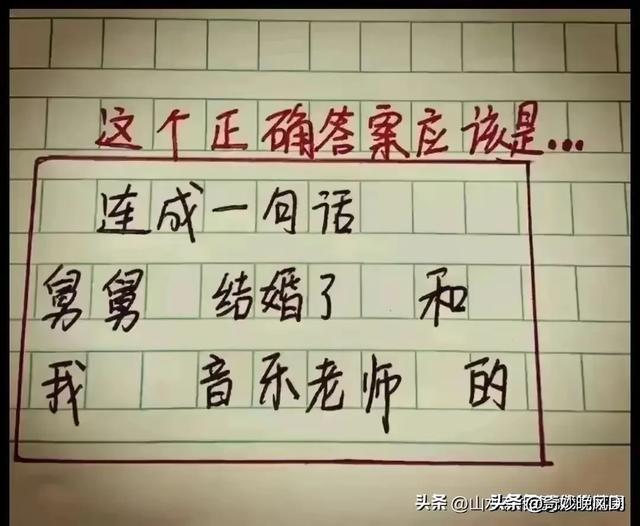 这个正确答案应该是...
连成一句话
舅舅 结婚了 和
我 音乐老师 的
头条 @山水